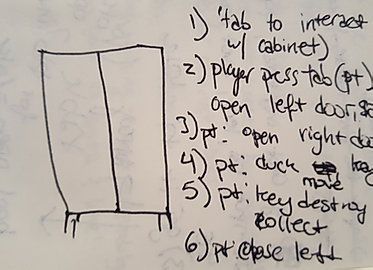 1) 'tab to interact
w/ cabinet)
2) player press tab (pt)
open left door,
3) pt: open right
4) pt: duck key
move
5) pt: key destroy
collect
6) pt close left